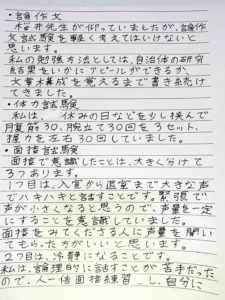 ・論作文
桜井先生が仰っていましたが、論作
文試験を軽く考えてはいけないと
思います。
私の勉強方法としては、自治体の研究
結果をいかにアピールができるか、
全弁構成を覚えるまで書き続け
てきました。
・体力試験
私は、休みの日などを少し挟んで
月复筋30、腕立て30回を3セット、
握力を左右30回していました。
・面接試験
面接で意識したことは、大きく分けて
3つあります。
1つ目は、入室から退室まで大きな声
でハキハキと話すことです。緊張で
声が小さくなると思うので、声量を一定
にすることを意識していました
面接をみてくださる人に声量を聞い
てもらった方がいいと思います。
2つ目は、冷静になることです。
私は、論理的に話すことが苦手だった
ので、人一倍面接練習し、自分に